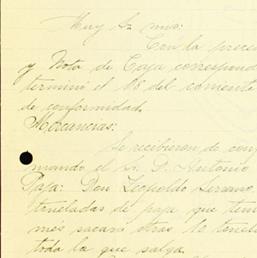 Muy Sr. mio:
Con la prece
y Nota de Caja correspond
terminó el 18 del corriente
de conformidad.
Mercancias:
Se recibieron de con
mando el Sr. D. Antonio
Paja: Don Leopoldo Serrano
toneladas de paja que ten
mes sacará otras 10 tonel
toda la que salga.